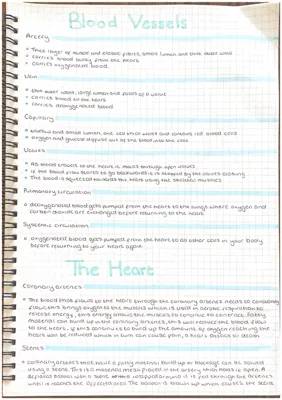 Blood Vessels
Artery
• Thick layer of muscle and elastic fibres, small lumen and thick outer wall
• carries blood away from the heart
• carries oxygenated blood
Vein
• thin outer wall, large lumen and pairs of valves
• carries blood to the heart
• carries deoxygenated blood
Capillary
• narrow and small lumen, one cell thick walls and contains red blood cells
• oxygen and glucose diffuse out of the blood into the cells
Valves
• As blood travels to the heart it moves through open valves
• if the blood flow starts to go backwards it is stopped by the valves closing
• The blood is squeezed towards the heart using the skeletal muscles
Pulmonary circulation
• deoxygenated blood gets pumped from the heart to the lungs where oxygen and
carbon dioxide are exchanged before returning to the heart
Systemic circulation
• oxygenated blood gets pumped from the heart to all other cells in your body
before returning to your heart again
The Heart
Coronary arteries
• The blood that flows to the heart through the coronary arteries needs to constantly
flow, this brings oxygen to the muscles which is used in aerobic respiration to
release energy, this energy allows the muscles to continue to contract. Fatty
material can build up in the coronary arteries, this can reduce the blood flow
to the heart. If this continues to build up the amounts of oxygen reaching the
heart will be reduced which in turn can cause pain, a heart attack or death
Stents
• coronary arteries that have a fatty material build up or blockage can be solved
using a stent. This is a metal mesh placed in the artery which keeps it open. A
deflated balloon with a stent wrapped around it is fed through the arteries
until it reaches the affected area. The balloon is blown up which causes the stent